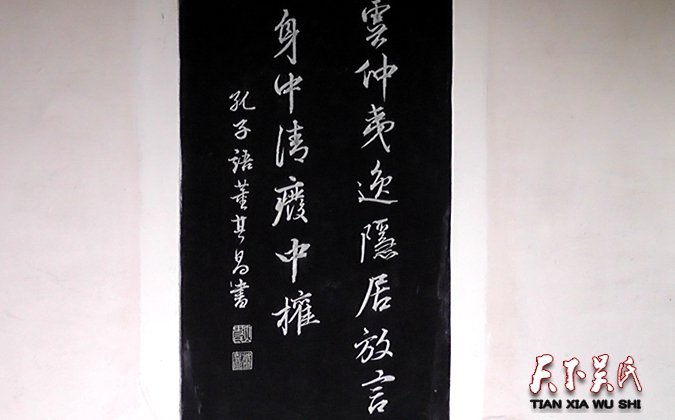 虞仲夷逸隱居放言
身中清癈中權
孔子語董其昌書
天下吴氏
TIAN XIA WU SHI